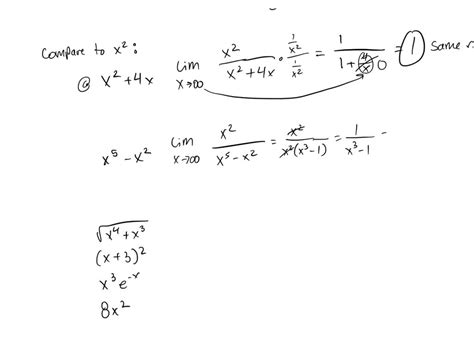 Compare to x²:
@ x² + 4x lim x→∞ x²/(x² + 4x) · (1/x²)/(1/x²) = 1/(1 + 4/x) 0 = 1 Same
x⁵ - x² lim x→∞ x²/(x⁵ - x²) = x²/(x²(x³ - 1)) = 1/(x³ - 1) =
√(x⁴ + x³)
(x + 3)²
x³ e⁻ˣ
8x²